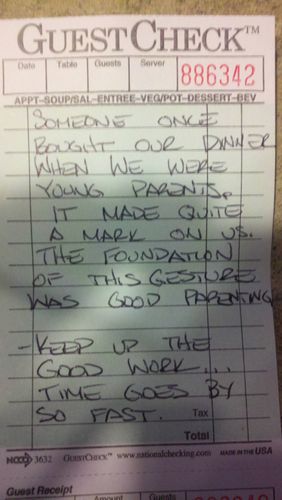 GUESTCHECK™
Date Table Guests Server 886342
APPT-SOUP/SAL-ENTREE-VEG/POT-DESSERT-BEV
SOMEONE ONCE
BOUGHT OUR DINNER
WHEN WE WERE
YOUNG PARENTS.
IT MADE QUITE
A MARK ON US.
THE FOUNDATION
OF THIS GESTURE
WAS GOOD PARENTING
-KEEP UP THE
GOOD WORK...
TIME GOES BY
SO FAST. Tax
Total
3632 GUESTCHECK™ www.nationalchecking.com MADE IN THE USA
Guest Receipt
Amount Guests